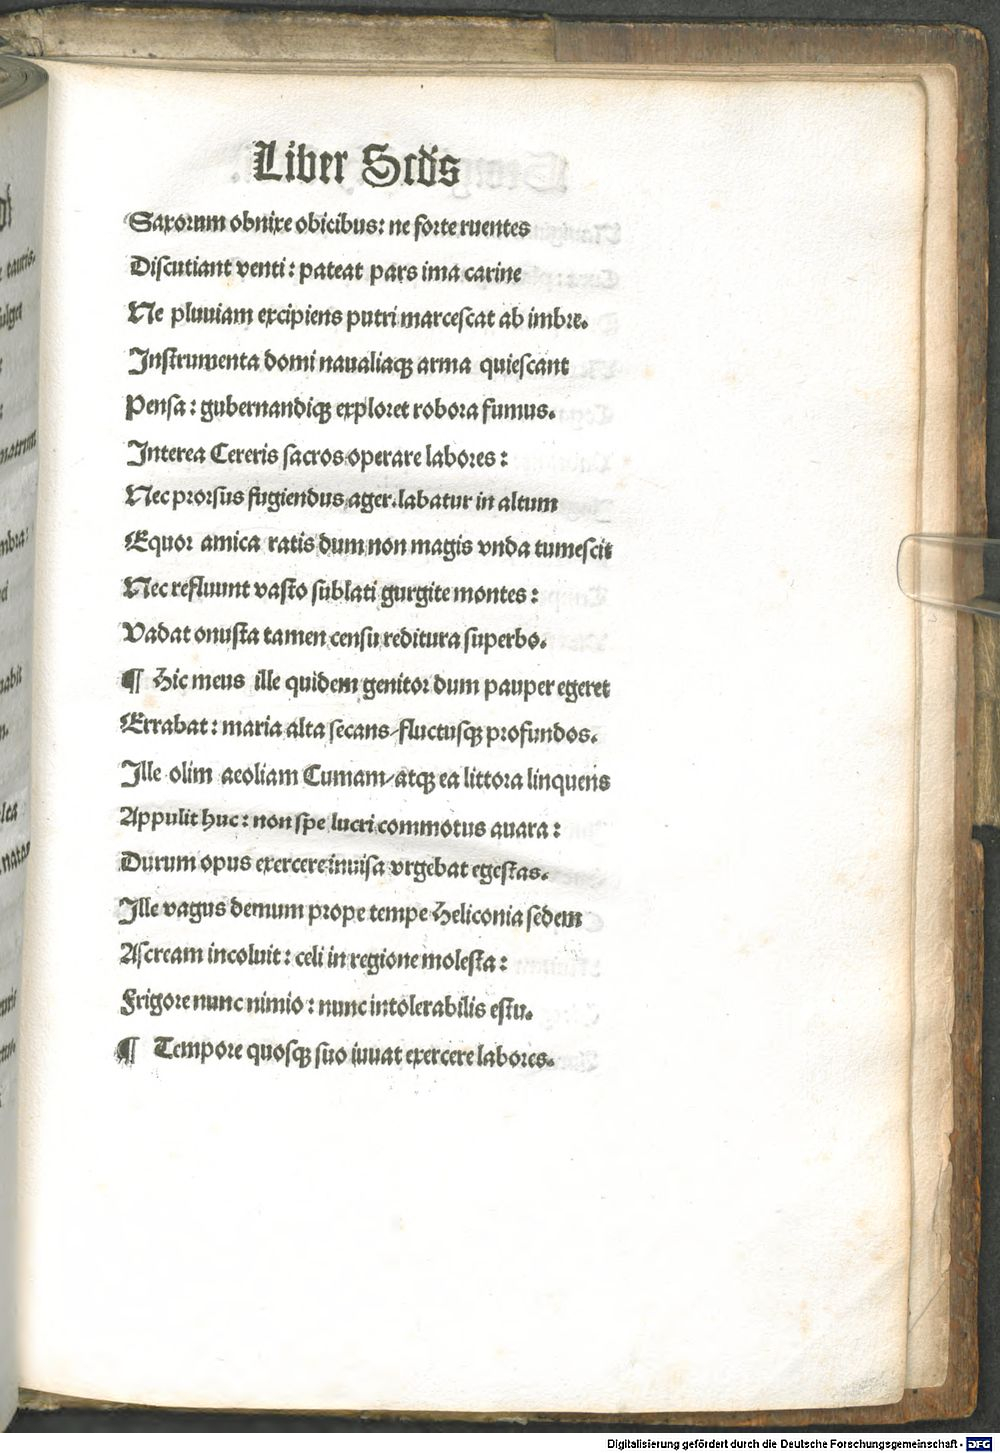 Liber Scďs
Saxorum obnixe obicibus: ne forte ruentes
Discutiant venti: pateat pars ima carine
Ne pluuiam excipiens putri marcescat ab imbre.
Instrumenta domi naualiaqꝫ arma quiescant
Pensa: gubernandiqꝫ exploret robora fumus.
Interea Cereris sacros operare labores:
Nec prorsus fugiendus ager. labatur in altum
Equor amica ratis dum non magis vnda tumescit
Nec refluunt vasto sublati gurgite montes:
Vadat onusta tamen censu reditura superbo.
¶ Hic meus ille quidem genitor dum pauper egeret
Errabat: maria alta secans/fluctusqꝫ profundos.
Ille olim aeoliam Cumam/atqꝫ ea littora linquens
Appulit huc: non spe lucri commotus auara:
Durum opus exercere inuisa vrgebat egestas.
Ille vagus demum prope tempe Heliconia sedem
Ascream incoluit: celi in regione molesta:
Frigore nunc nimio: nunc intolerabilis estu.
¶ Tempore quosqꝫ suo iuuat exercere labores.
tauris.
ulget
matrum
mbra:
nabit
elta
natas
Digitalisierung gefördert durch die Deutsche Forschungsgemeinschaft - DFG